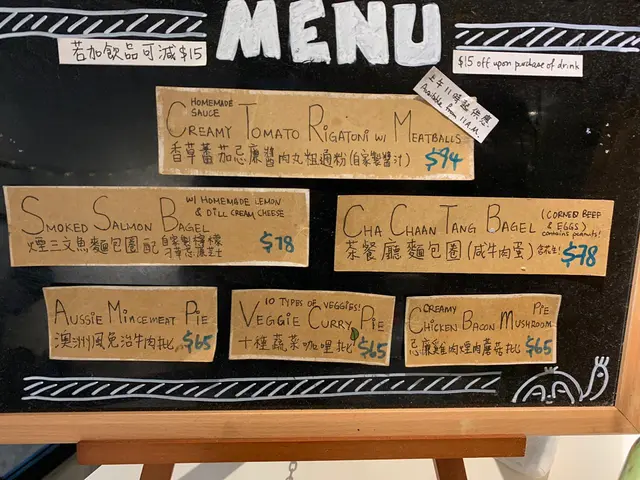 MENU
若加飲品可減$15
$15 off upon purchase of drink
上午11時起供應
Available from 11 A.M.
HOMEMADE SAUCE
CREAMY TOMATO RIGATONI W/ MEATBALLS
香草蕃茄忌廉醬肉丸粗通粉(自家製醬汁)
$94
SMOKED SALMON BAGEL
W/ HOMEMADE LEMON & DILL CREAM CHEESE
煙三文魚麵包圈配
自家製檸檬
刁草忌廉芝士
$78
CHA CHAAN TANG BAGEL
(CORNED BEEF & EGGS)
contains peanuts!
茶餐廳麵包圈(咸牛肉蛋)
$78
AUSSIE MINCEMEAT PIE
澳洲風免治牛肉批
$65
10 TYPES OF VEGGIES!
VEGGIE CURRY PIE
十種蔬菜咖哩批
$65
CREAMY CHICKEN BACON MUSHROOM PIE
忌廉雞肉煙肉蘑菇批
$65